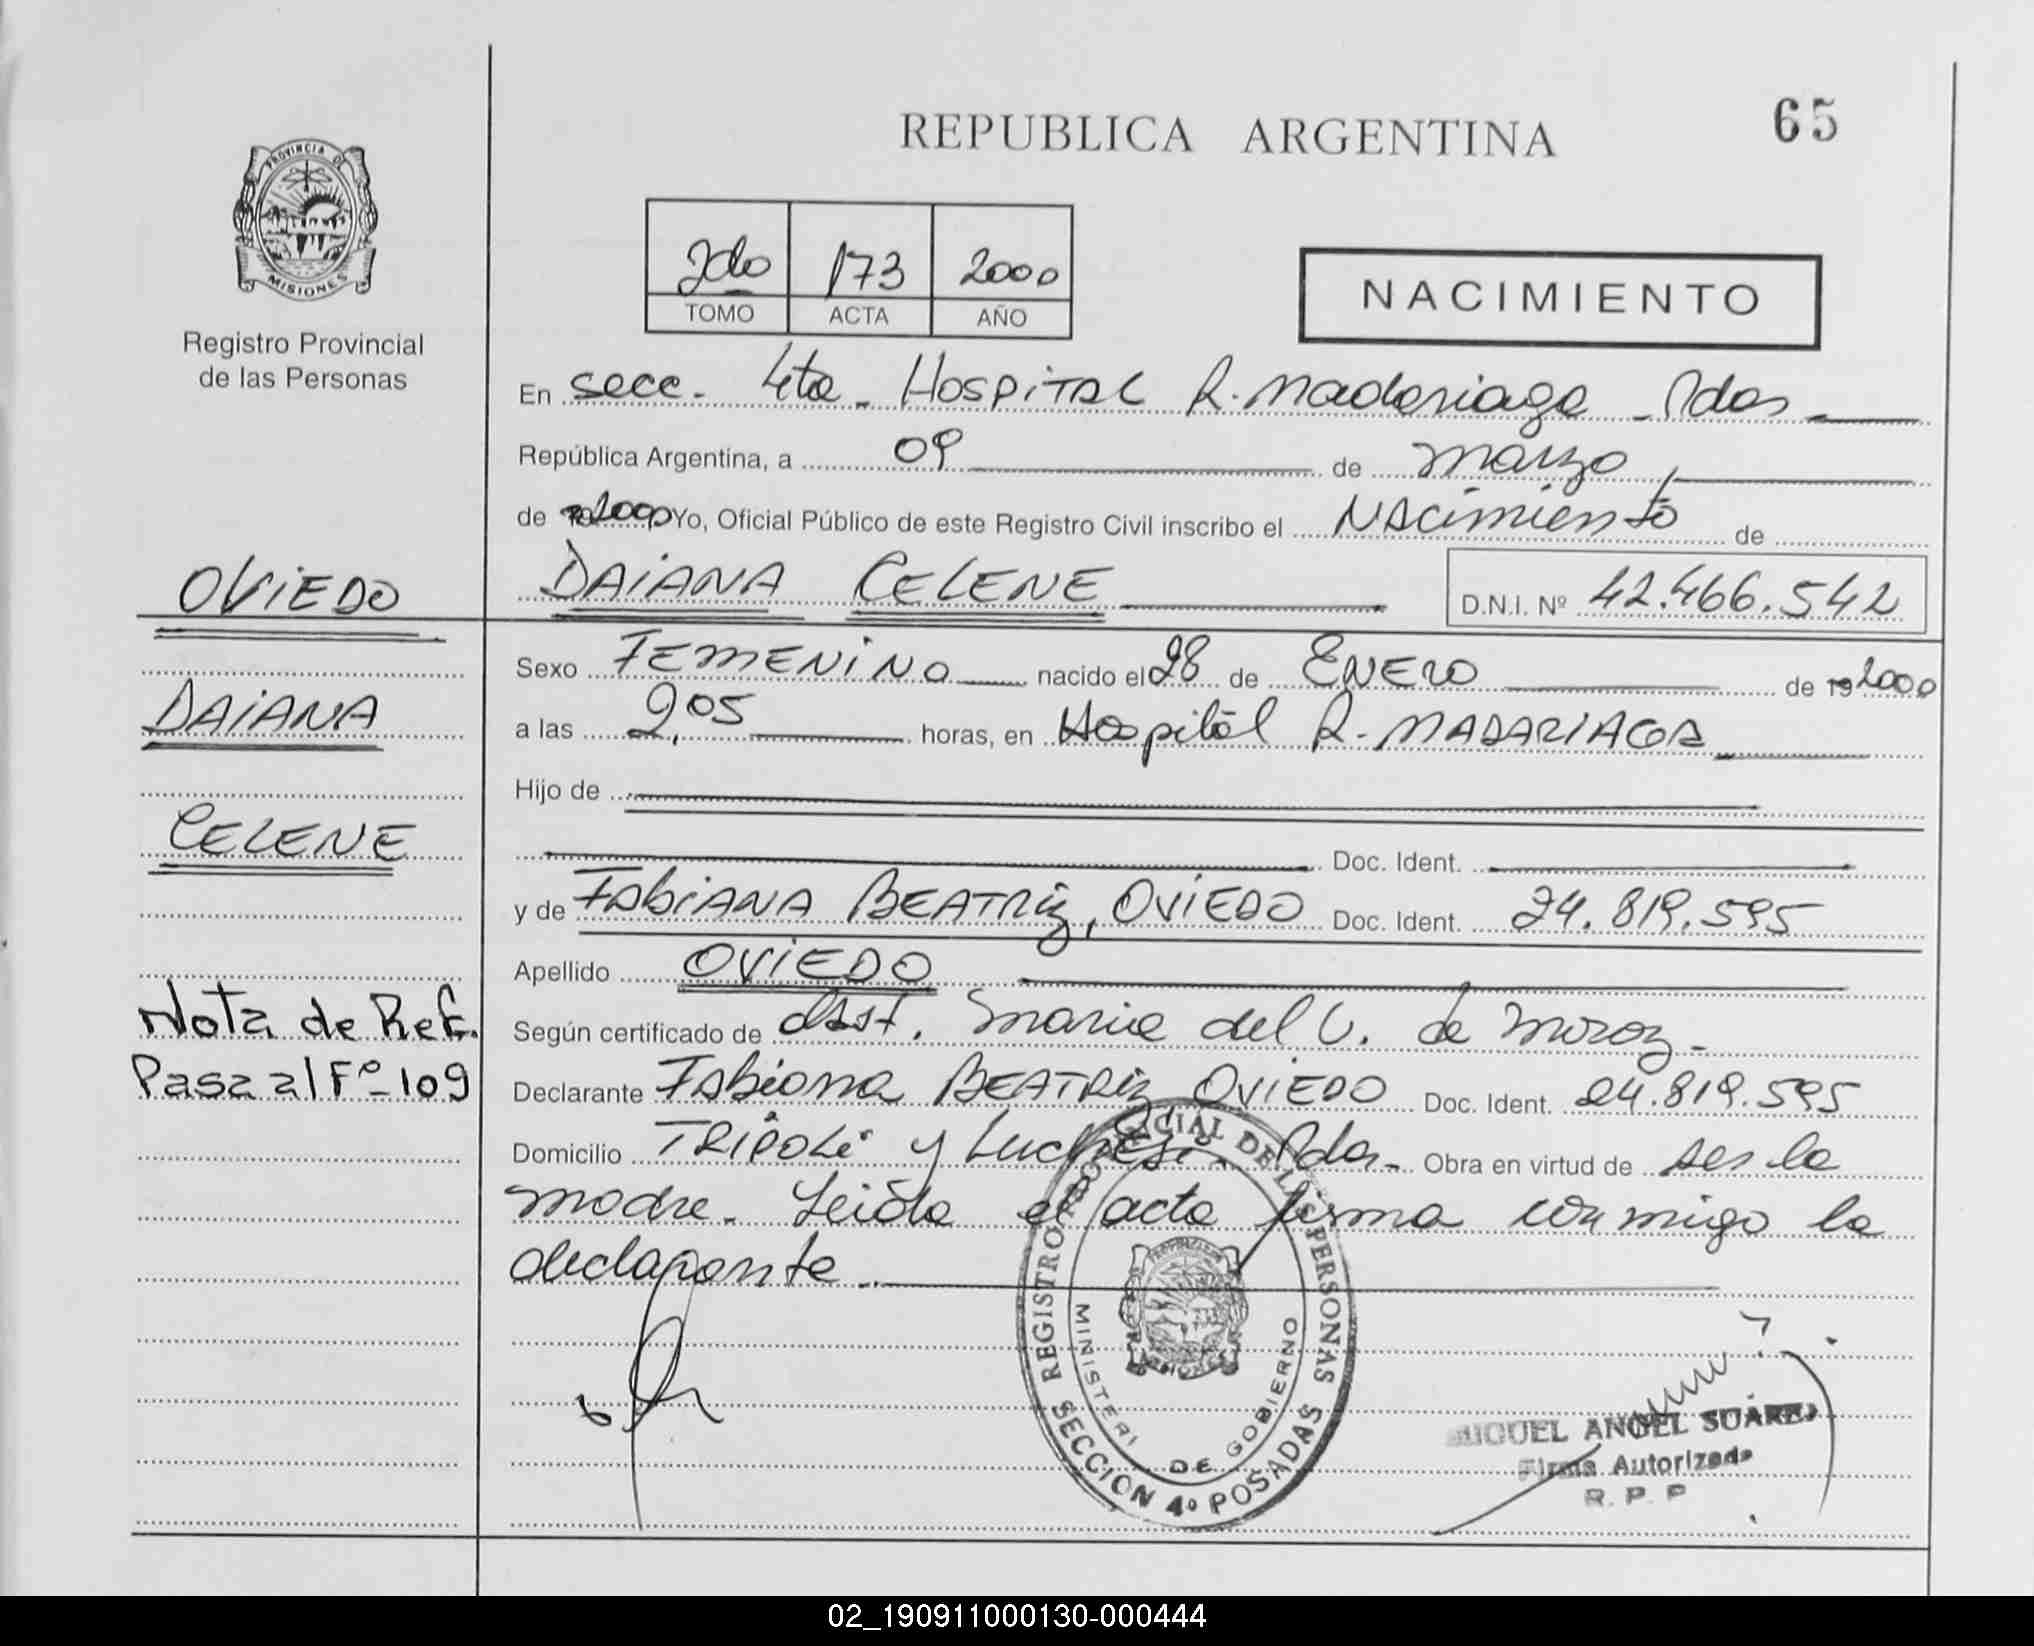 REPUBLICA ARGENTINA
65
PROVINCIA DE
MISIONES
Registro Provincial
de las Personas
2do 173 2000
TOMO ACTA AÑO
NACIMIENTO
En secc. 4ta - HOSPITAL R. Madariaga - Pdas
República Argentina, a 09 de marzo
de 19 2000 Yo, Oficial Público de este Registro Civil inscribo el Nacimiento de
DAIANA CELENE D.N.I. Nº 42.466.542
Sexo FEMENINO nacido el 28 de ENERO de 19 2000
a las 2,05 horas, en Hospital R. MADARIAGA
Hijo de
Doc. Ident.
y de FABIANA BEATRIZ, OVIEDO Doc. Ident. 24.819.595
Apellido OVIEDO
Según certificado de Asist. Maria del C. de Moroz -
Declarante Fabiana BEATRIZ OVIEDO Doc. Ident. 24.819.595
Domicilio TRIPOLI y Luchesi - Pdas - Obra en virtud de ser la
madre. Leida el acta firma conmigo la
declarante.
OVIEDO
DAIANA
CELENE
Nota de Ref.
Pasa al Fº 109
REGISTRO PROVINCIAL DE LAS PERSONAS
MINISTERI DE GOBIERNO
SECCION 4º POSADAS
MIGUEL ANGEL SUAREZ
Firma Autorizada
R. P. P
02_190911000130-000444